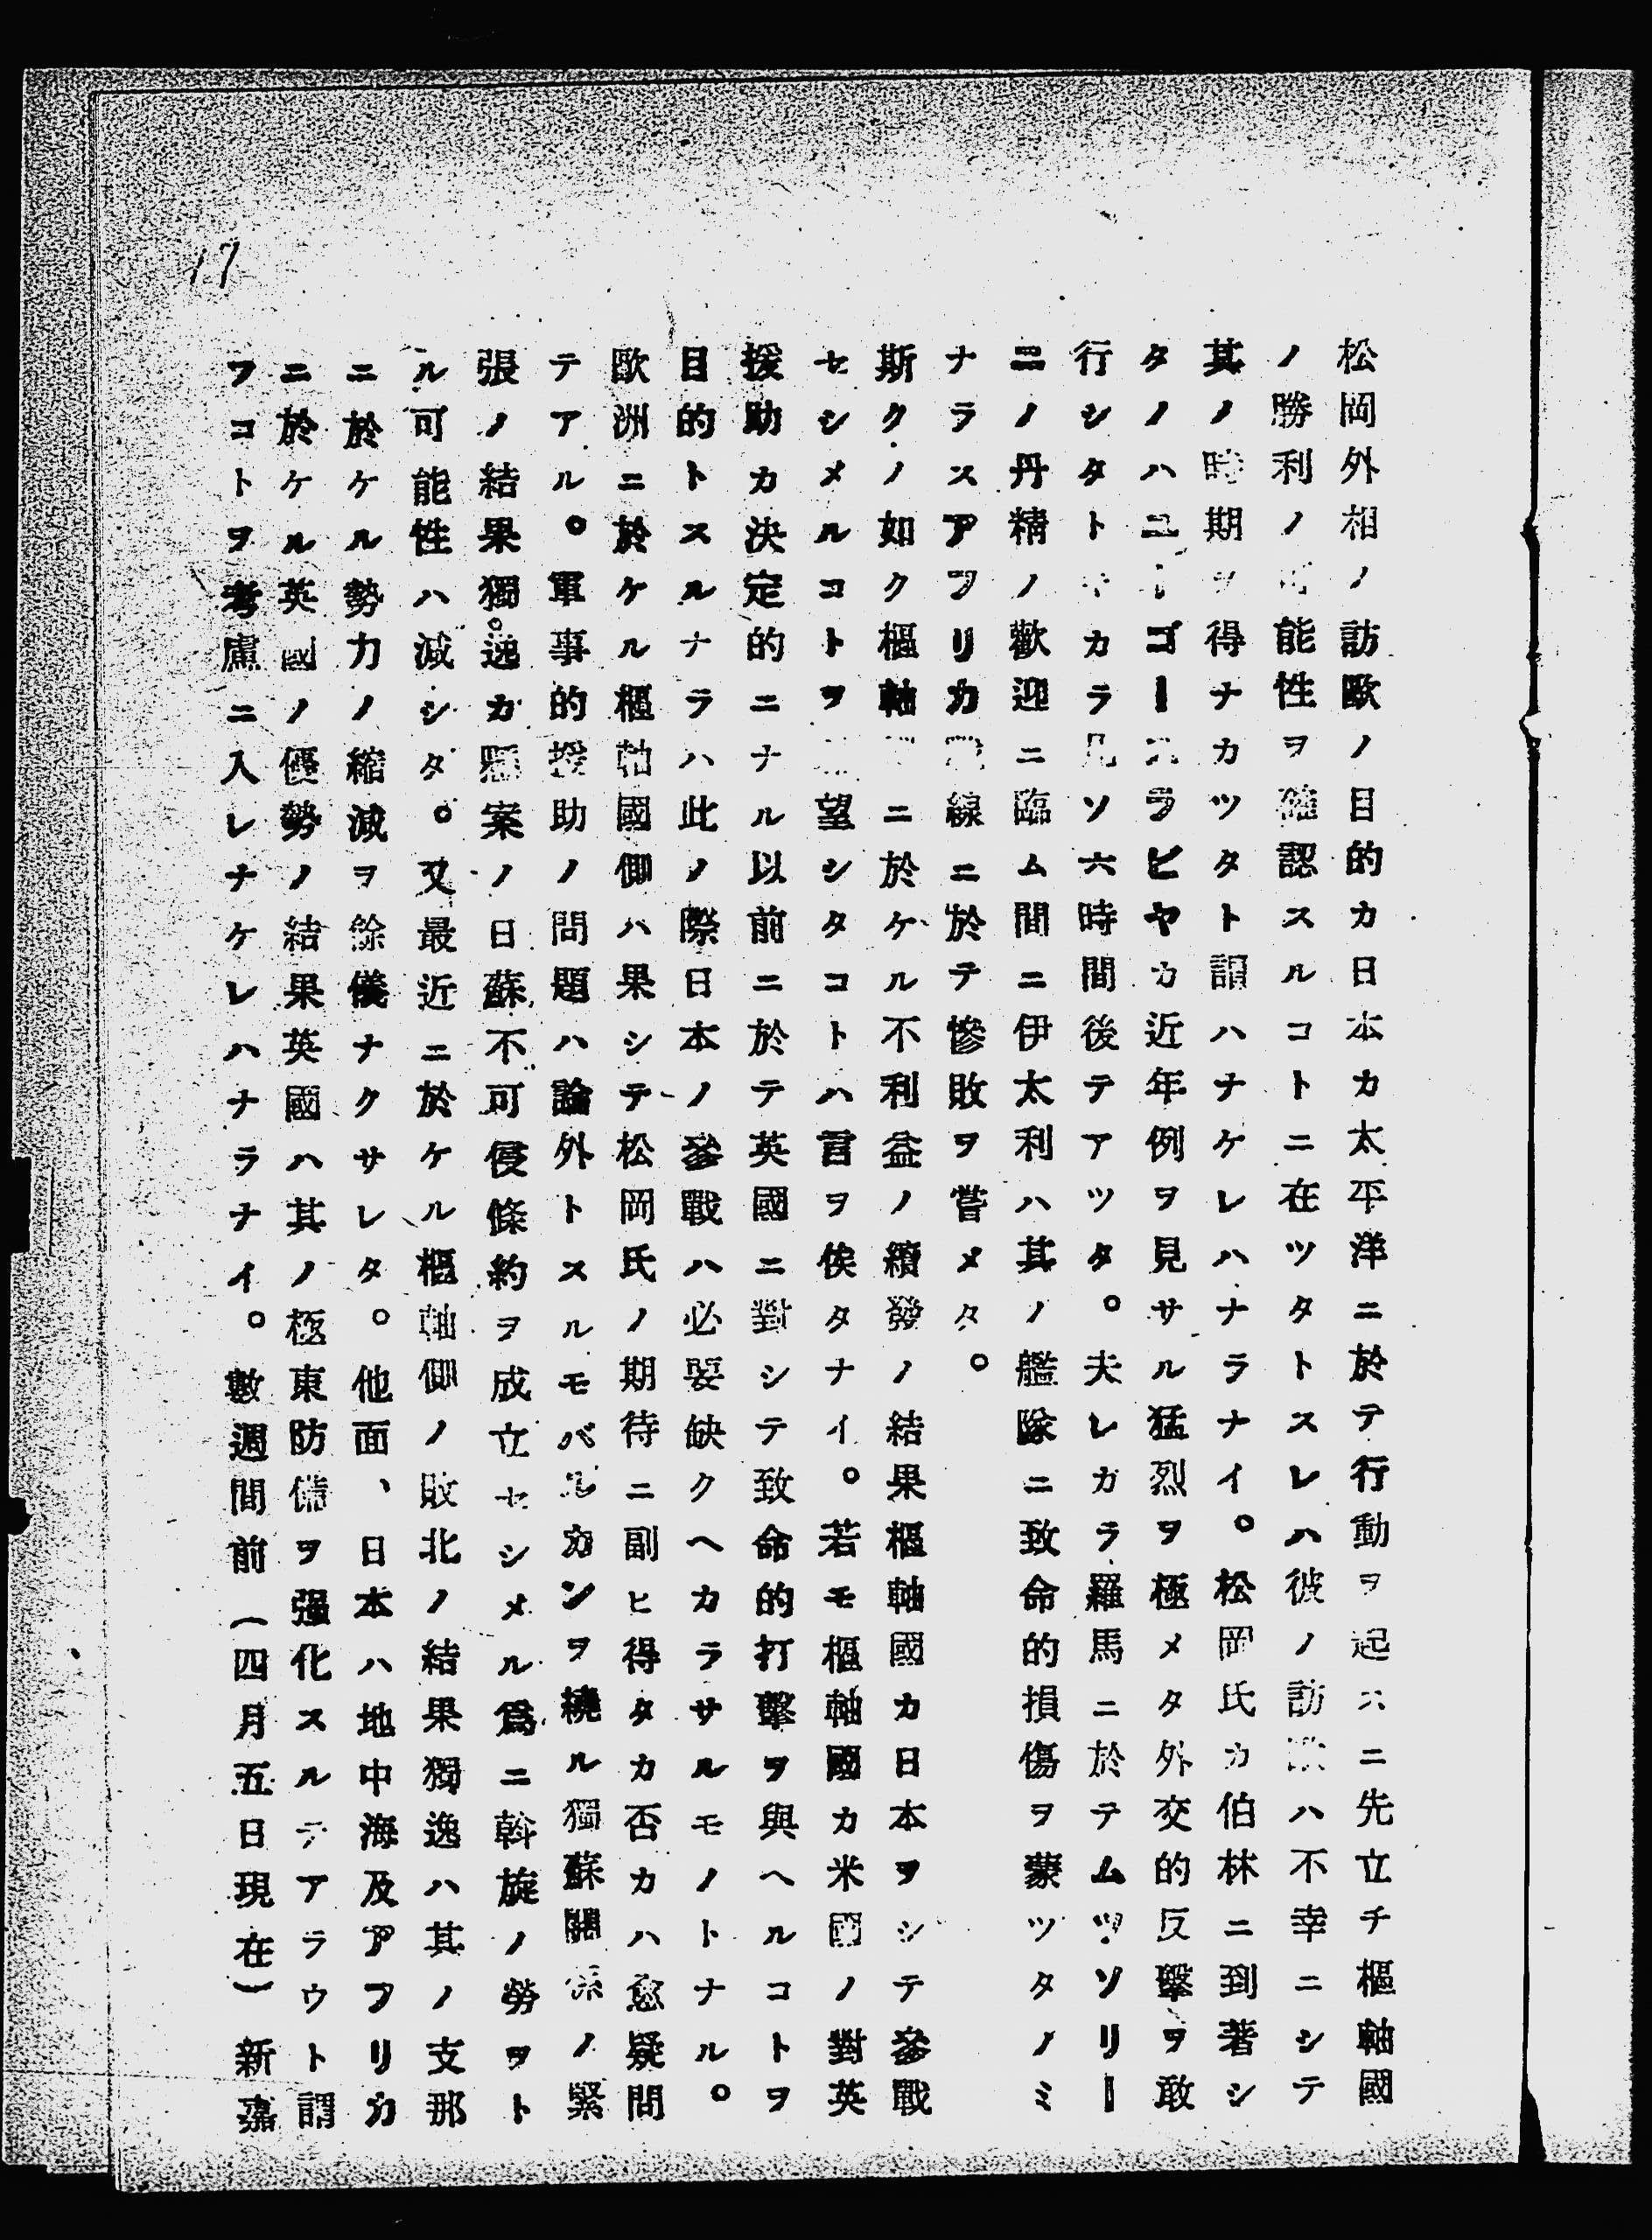 17
松岡外相ノ訪歐ノ目的カ日本カ太平洋ニ於テ行動ヲ起スニ先立チ樞軸國
ノ勝利ノ可能性ヲ確認スルコトニ在ツタトスレハ彼ノ訪歐ハ不幸ニシテ
其ノ時期ヲ得ナカツタト謂ハナケレハナラナイ。松岡氏カ伯林ニ到著シ
タノハユーゴースラビヤカ近年例ヲ見サル猛烈ヲ極メタ外交的反擊ヲ敢
行シタトキカラ凡ソ六時間後テアツタ。夫レカラ羅馬ニ於テムツソリー
ニノ丹精ノ歡迎ニ臨ム間ニ伊太利ハ其ノ艦隊ニ致命的損傷ヲ蒙ツタノミ
ナラスアフリカ戰線ニ於テ慘敗ヲ嘗メタ。
斯クノ如ク樞軸ニ於ケル不利益ノ續發ノ結果樞軸國カ日本ヲシテ參戰
セシメルコトヲ望シタコトハ言ヲ俟タナイ。若モ樞軸國カ米國ノ對英
援助カ決定的ニナル以前ニ於テ英國ニ對シテ致命的打擊ヲ與ヘルコトヲ
目的トスルナラハ此ノ際日本ノ參戰ハ必要缺クヘカラサルモノトナル。
歐洲ニ於ケル樞軸國側ハ果シテ松岡氏ノ期待ニ副ヒ得タカ否カハ愈疑問
テアル。軍事的援助ノ問題ハ論外トスルモバルカンヲ繞ル獨蘇關係ノ緊
張ノ結果獨逸カ懸案ノ日蘇不可侵條約ヲ成立セシメル爲ニ斡旋ノ勞ヲト
ル可能性ハ減シタ。又最近ニ於ケル樞軸側ノ敗北ノ結果獨逸ハ其ノ支那
ニ於ケル勢力ノ縮減ヲ餘儀ナクサレタ。他面、日本ハ地中海及アフリカ
ニ於ケル英國ノ優勢ノ結果英國ハ其ノ極東防備ヲ强化スルテアラウト謂
フコトヲ考慮ニ入レナケレハナラナイ。數週間前(四月五日現在)新嘉